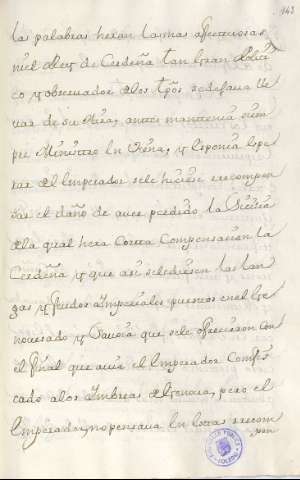 143
las palabras heran las mas afectuosas,
ni el Rey de Cerdeña tan gran Politi
co y observador de los tpõs se dejava lle
var de su ira, antes mantenia siem
pre Ministro en Viena, y esponia espe
rar del Emperador se le hiciese recompen
sar el daño de aver perdido la Sicilia
de la qual hera corta compensacion la
Cerdeña y que asi se le diesen las lan
gas y feudos Imperiales puestos en el Ge
novesado y Savoia que se le ofrecieron con
el final que avia el Emperador Confis
cado a los de Genova, pero el
Emperador no pensava en estas recom
pen